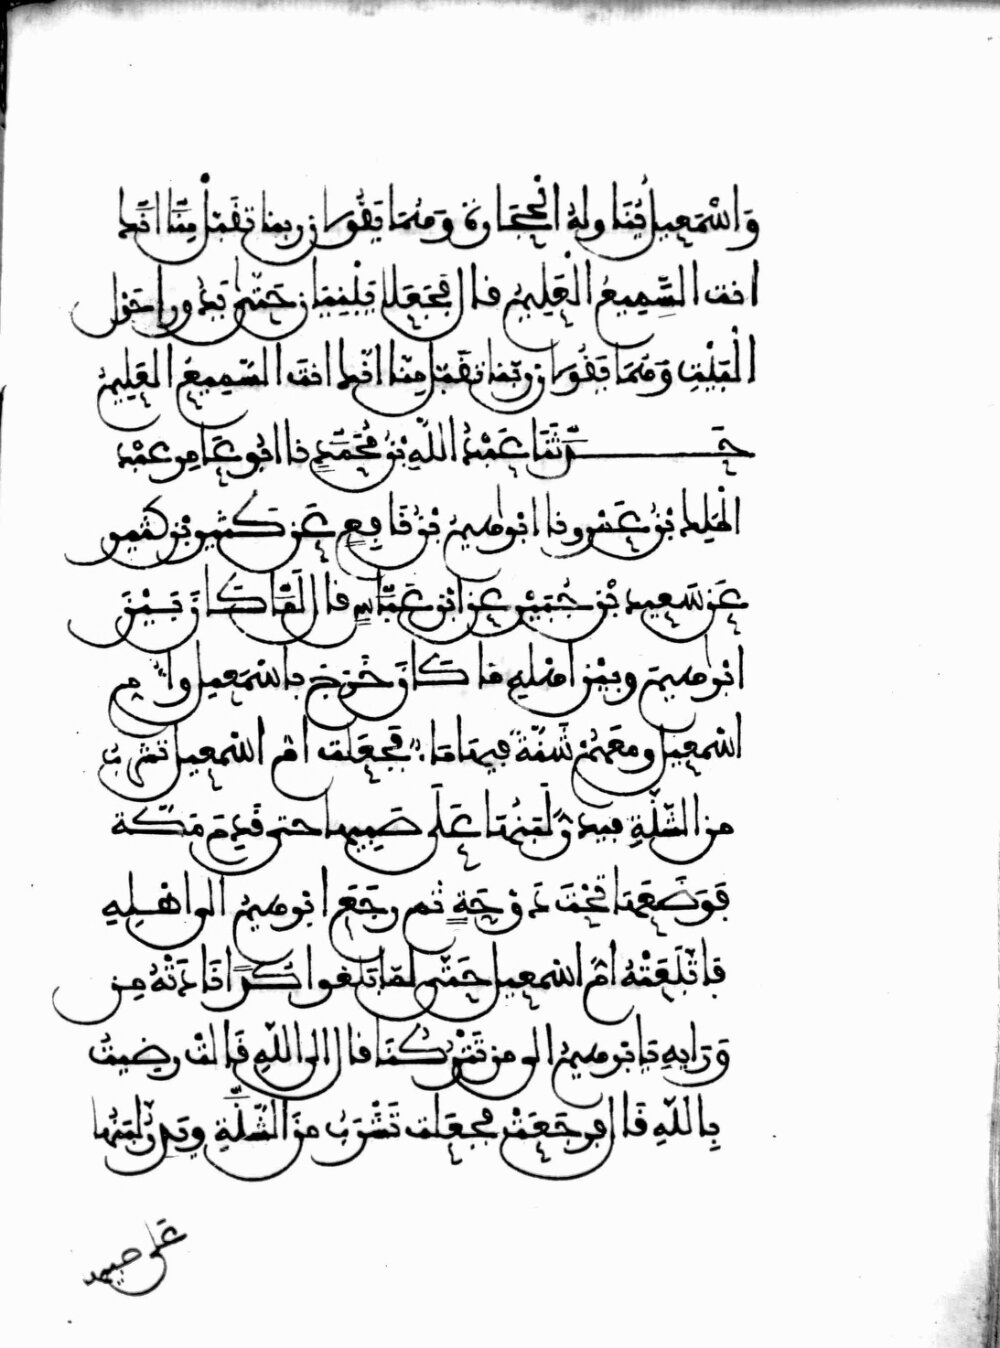 وَإِسْمَعِيلُ يُنَاوِلُهُ الْحِجَارَةَ وَهُمَا يَقُولَانِ رَبَّنَا تَقَبَّلْ مِنَّا إِنَّكَ
أَنْتَ السَّمِيعُ الْعَلِيمُ قَالَ فَجَعَلَا يَبْنِيَانِ حَتَّى يَدُورَا حَوْلَ
الْبَيْتِ وَهُمَا يَقُولَانِ رَبَّنَا تَقَبَّلْ مِنَّا إِنَّكَ أَنْتَ السَّمِيعُ الْعَلِيمُ
حَدَّثَنَا عَبْدُ اللَّهِ بْنُ مُحَمَّدٍ نا أَبُو عَامِرٍ عَبْدُ
الْمَلِكِ بْنُ عَمْرٍو نا إِبْرَاهِيمُ بْنُ نَافِعٍ عَنْ كَثِيرِ بْنِ كَثِيرٍ
عَنْ سَعِيدِ بْنِ جُبَيْرٍ عَنِ ابْنِ عَبَّاسٍ قَالَ لَمَّا كَانَ بَيْنَ
إِبْرَاهِيمَ وَبَيْنَ أَهْلِهِ مَا كَانَ خَرَجَ بِإِسْمَعِيلَ وَأُمِّ
إِسْمَعِيلَ وَمَعَهُمْ شَنَّةٌ فِيهَا مَاءٌ فَجَعَلَتْ أُمُّ إِسْمَعِيلَ تَشْرَبُ
مِنَ الشَّنَّةِ فَيَدِرُّ لَبَنُهَا عَلَى صَبِيِّهَا حَتَّى قَدِمَ مَكَّةَ
فَوَضَعَهَا تَحْتَ دَوْحَةٍ ثُمَّ رَجَعَ إِبْرَاهِيمُ إِلَى أَهْلِهِ
فَاتَّبَعَتْهُ أُمُّ إِسْمَعِيلَ حَتَّى لَمَّا بَلَغُوا كُدًا نَادَتْهُ مِنْ
وَرَائِهِ يَا إِبْرَاهِيمُ إِلَى مَنْ تَتْرُكُنَا قَالَ إِلَى اللَّهِ قَالَتْ رَضِيتُ
بِاللَّهِ قَالَ فَرَجَعَتْ فَجَعَلَتْ تَشْرَبُ مِنَ الشَّنَّةِ وَيَدِرُّ لَبَنُهَا
عَلَى صبيها